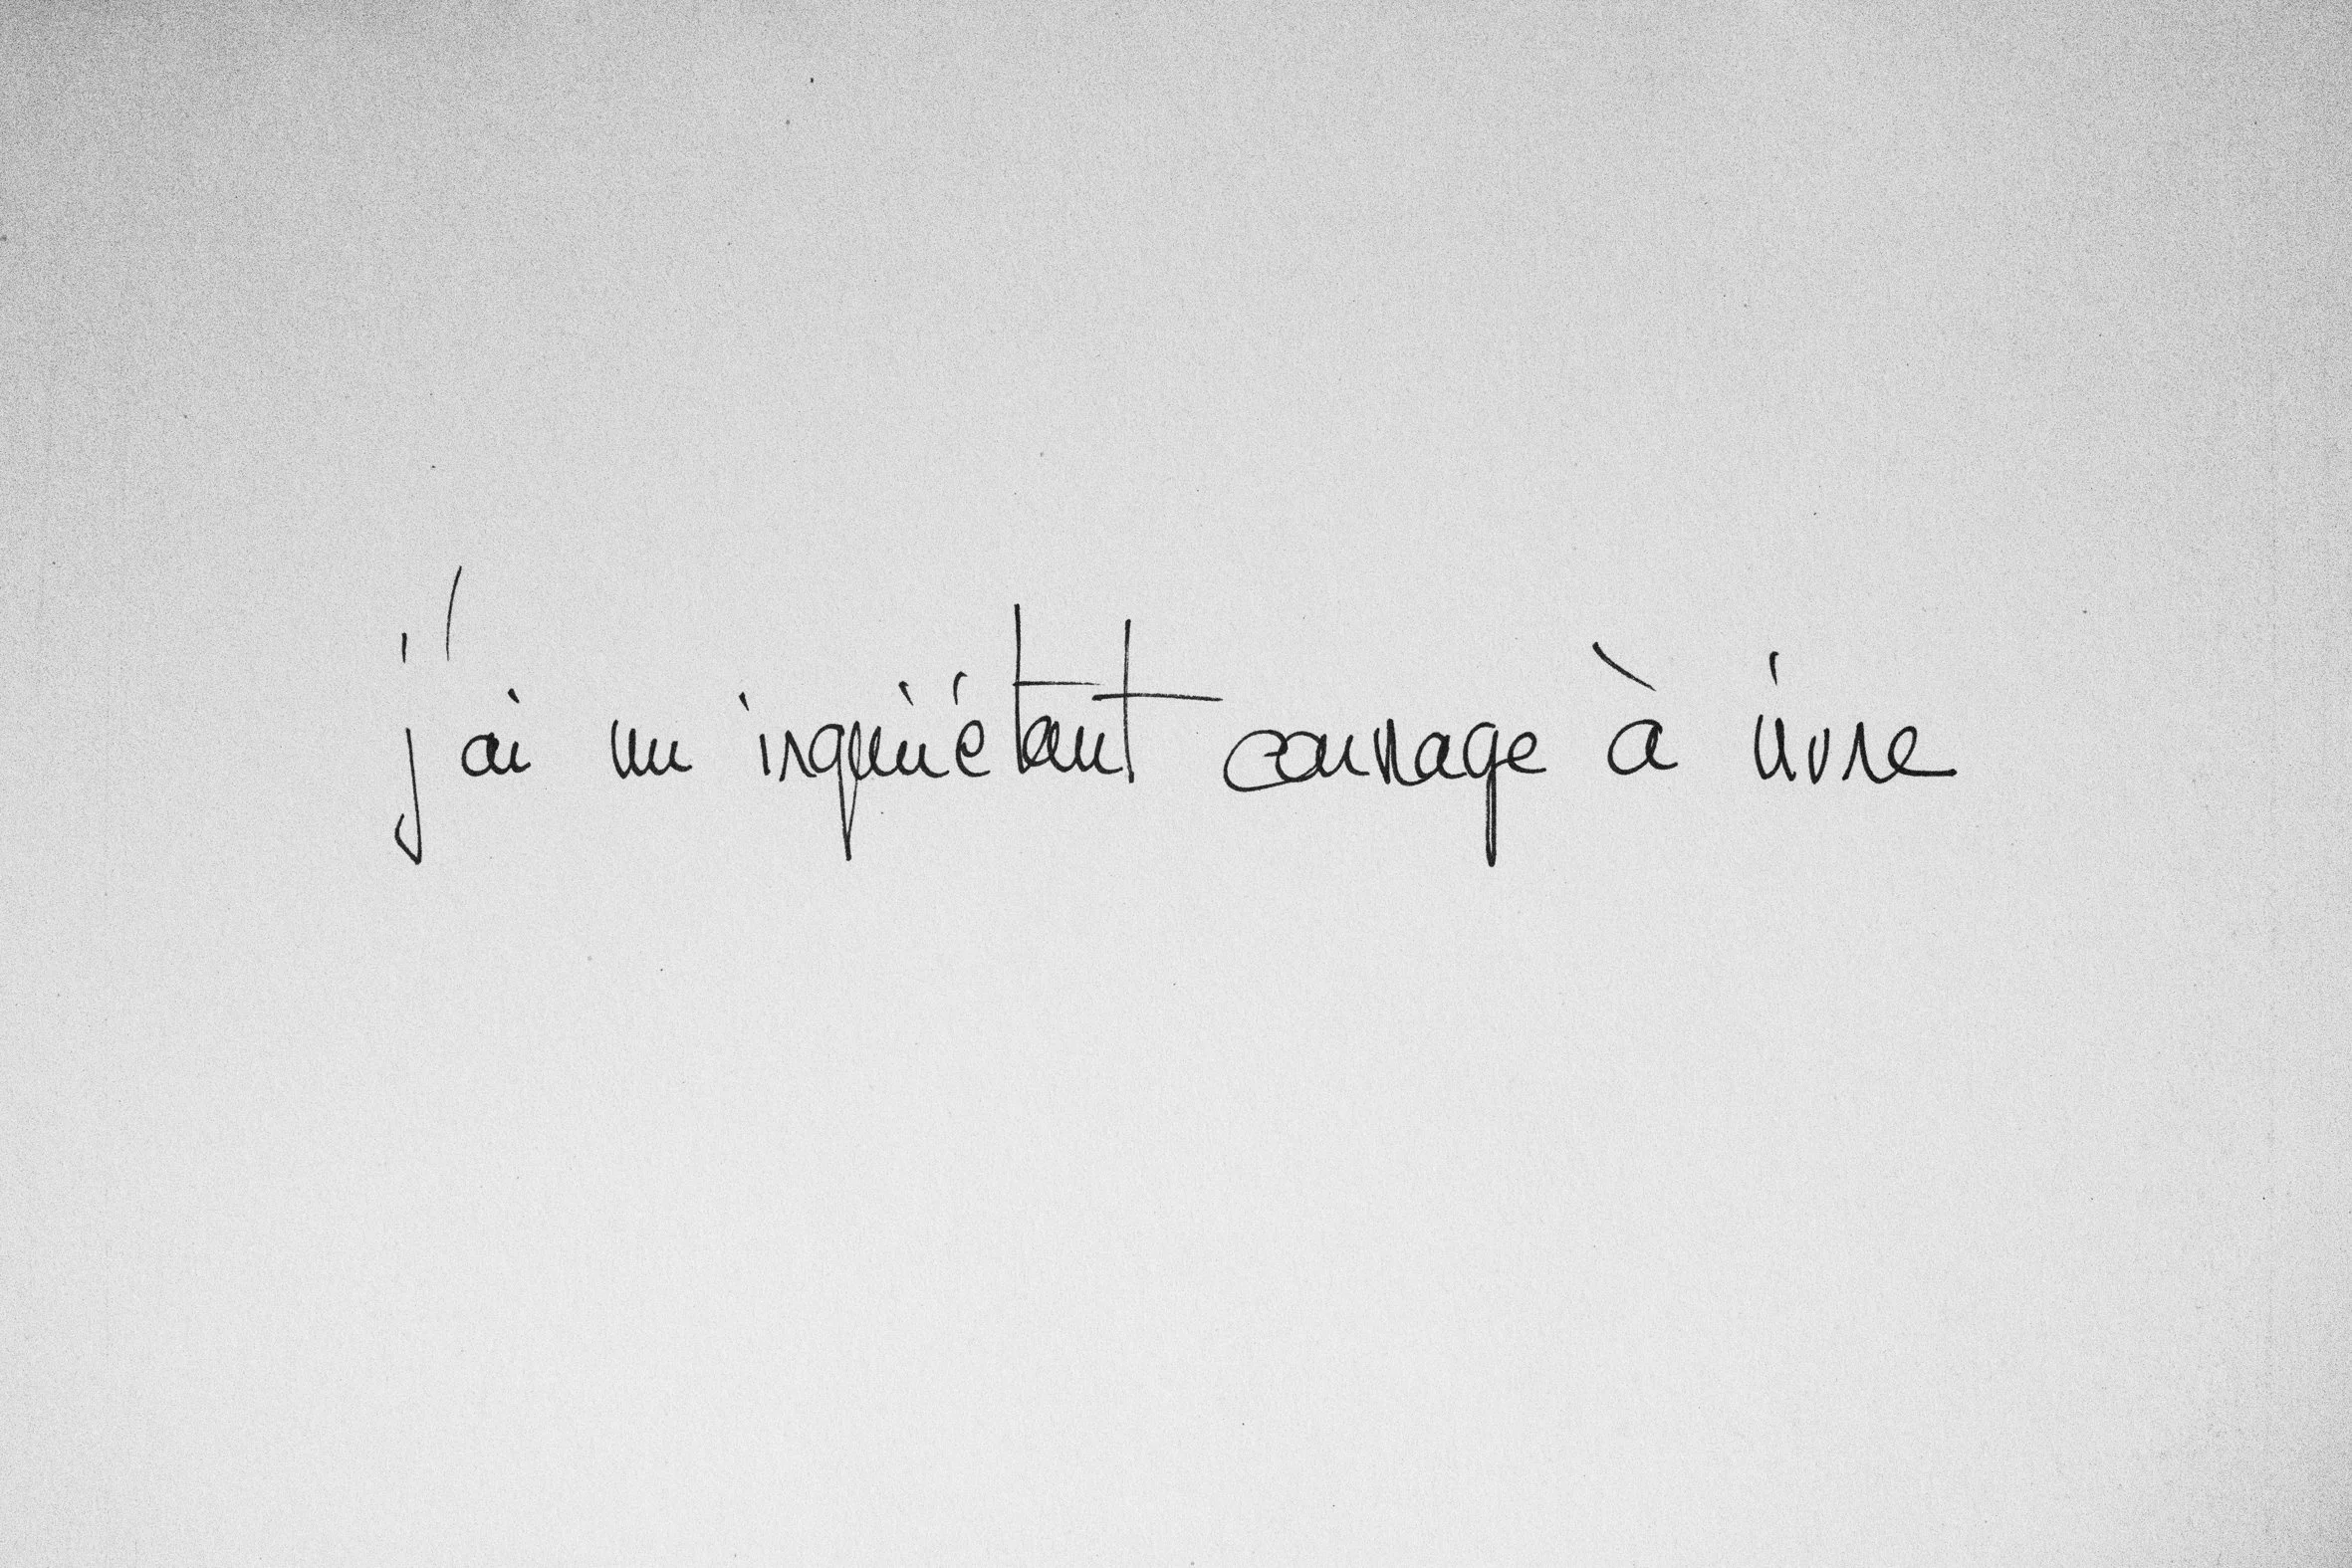 j'ai un inquiétant courage à vivre